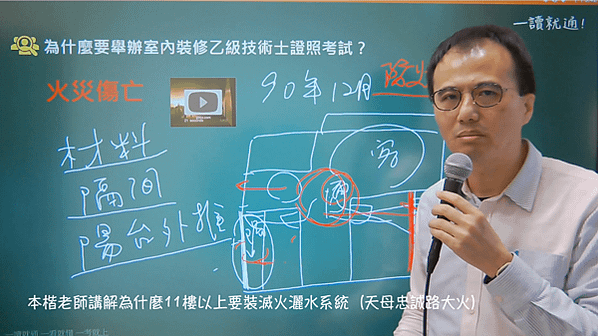 一讀就通!
為什麼要舉辦室內裝修乙級技術士證照考試？
火災傷亡
90年12月 防火
材料
隔間
陽台外推
本楷老師講解為什麼11樓以上要裝滅火灑水系統 (天母忠誠路大火)